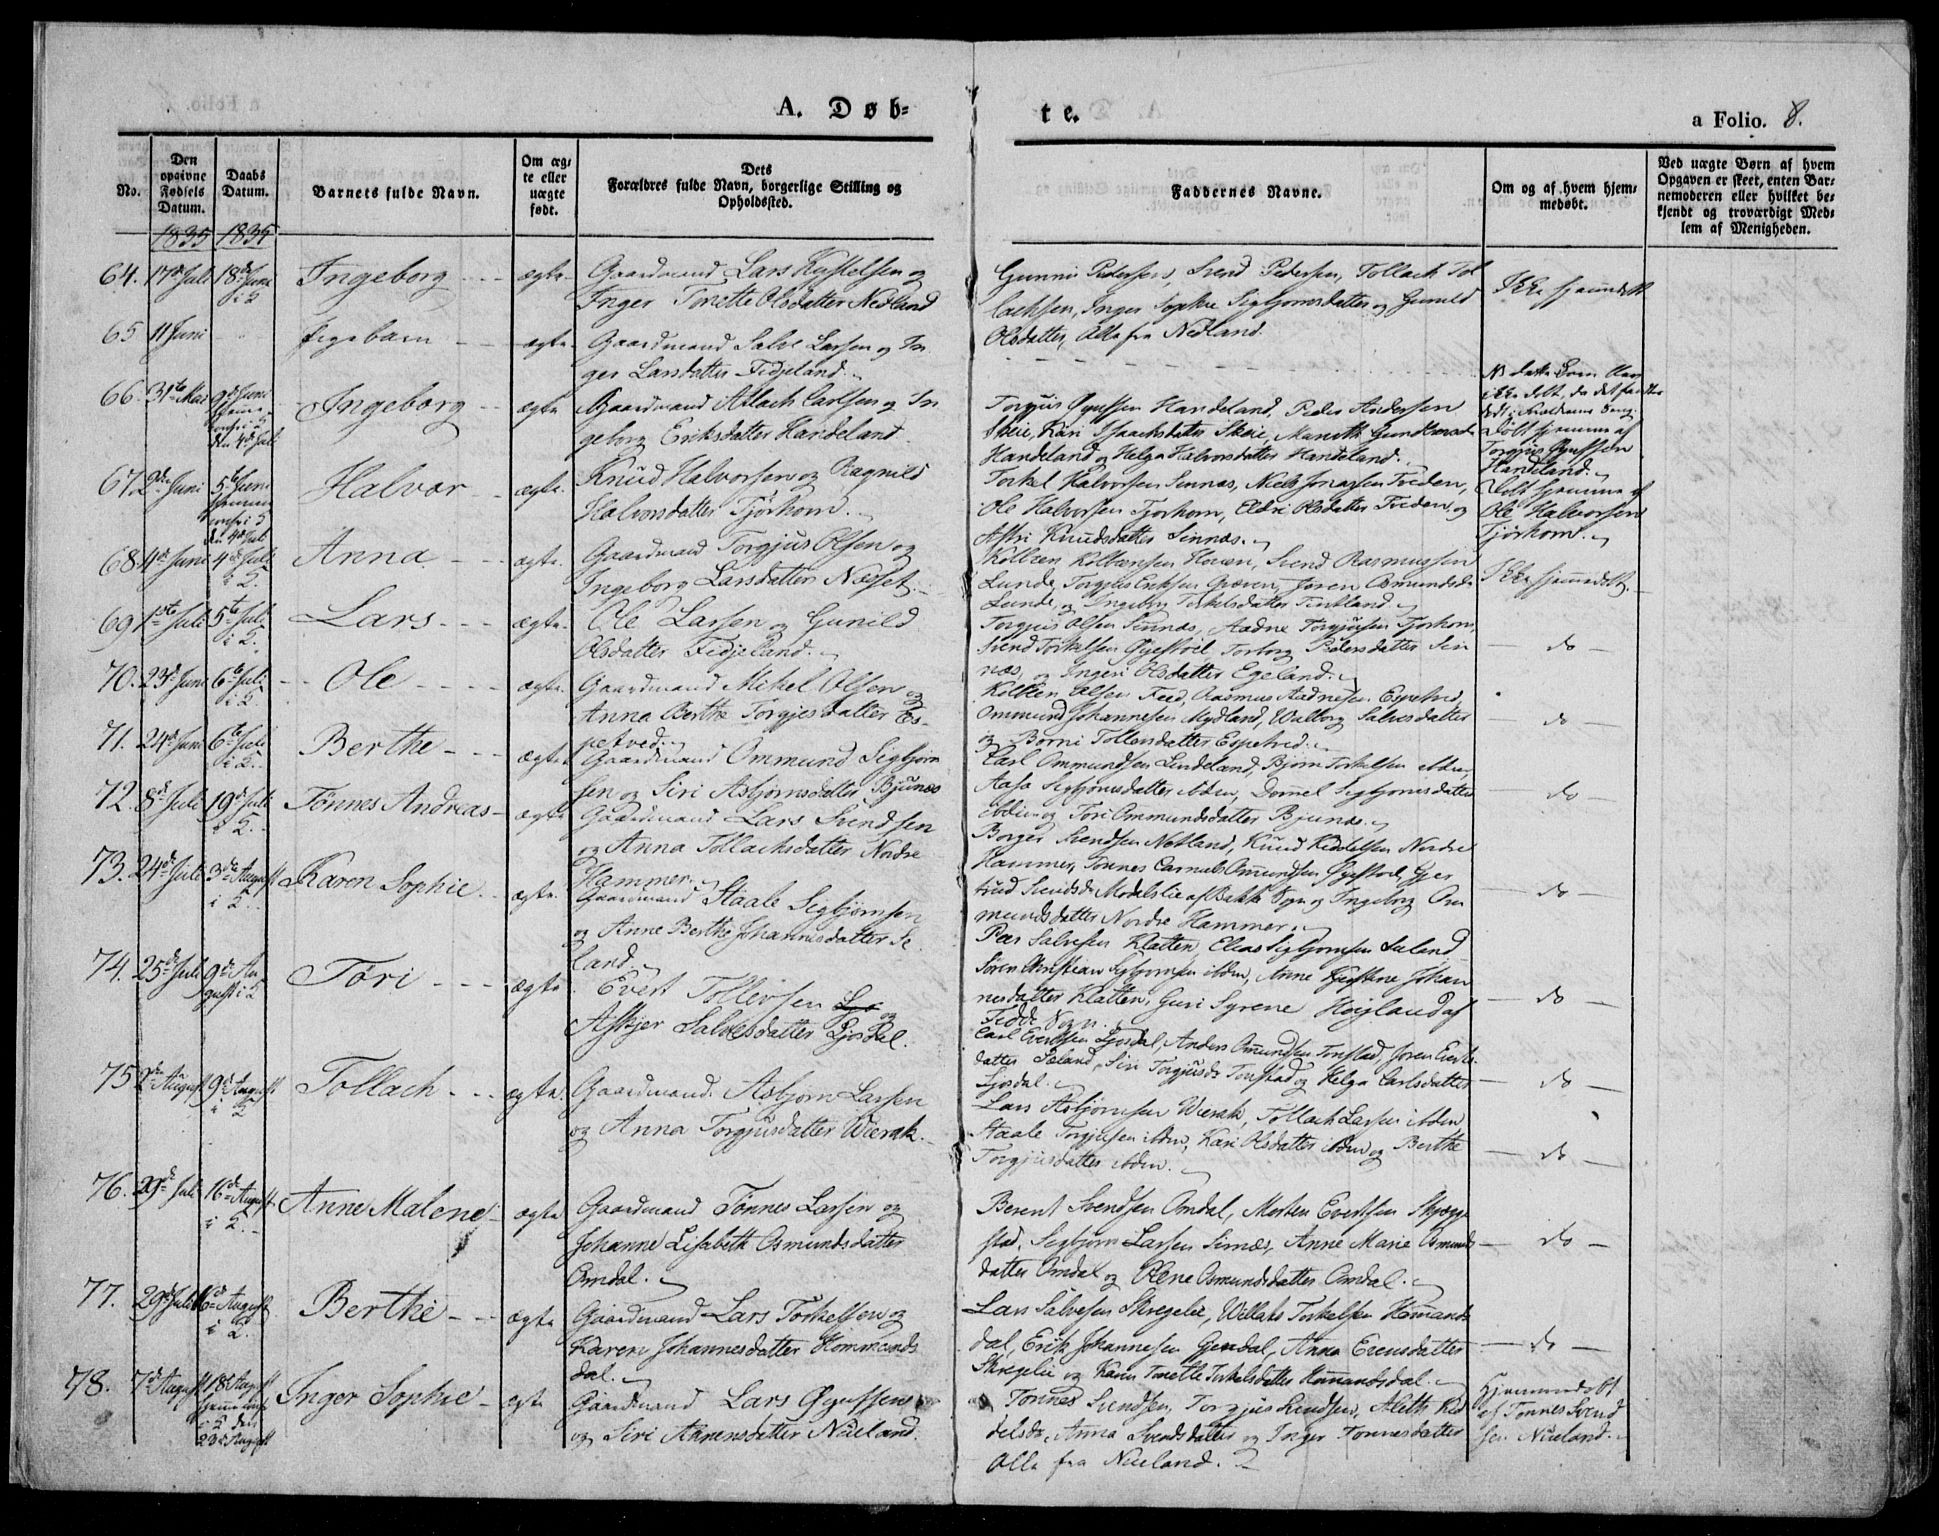 A. Døb-
te.
a Folio. 8.
No.
Den
opgivne
Fødsels
Datum.
Daabs
Datum.
Barnets fulde Navn.
Om æg-
te eller
uægte
født.
Dets
Forældres fulde Navn, borgerlige Stilling og
Opholdssted.
Faddernes Navne.
Om og af hvem hjem-
medøbt.
Ved uægte Børn af hvem
Opgaven er skeet, enten Bar-
nemoderen eller hvilket be-
kjendt og troværdigt Med-
lem af Menigheden.
1835 1835
64. 17de Juli 18de Juni Ingeborg ægte Gaardmand Lars
i 2
Inger Tonette Olsdatter Nedland
Gunni Pedersen, Svend Pedersen, Tollach Tol
lachsen, Inger Sophie Sigbjørnsdatter og Gunild
Olsdatter, Alle fra Nedland.
Ikke hjemdøbt
65 11 Juni ægte Gaardmand Salve Larsen og In
ger Larsdatter Fidjeland.
66. 31te Mai 9de Juni Ingeborg ægte Gaardmand Atlach Carlsen og In
den 4de Juli
geborg Eriksdatter Handeland.
Torgjus Øyufsen Handeland, Peder Andersen
Skeie, Kari Isaachsdatter Skeie,
Handeland og Helga Halvorsdatter Handeland.
Døbt hjemme af
Torgjus Øyufsen
Handeland.
67. 2den Juni 5te Juni Halvor ægte. Knud Halvorsen og Ragnild
den 4de Juli
Halvorsdatter Tjørhom.
Torkel Halvorsen Sinnæs, Niels Jonassen Fieden,
Ole Halvorsen Tjørhom, Eldri Olsdatter Fieden, og
Astri Knudsdatter Sinnæs.
Døbt hjemme af
Ole Halvorsen
Tjørhom.
68. 4de Juni 4de Juli Anna ægte. Gaardmand Torgjus Olsen og
i 2.
Ingeborg Larsdatter Næset.
Kolbeen Kolbeensen Hoven, Svend Rasmussen
Lunde, Torgjus Eriksen Græven, Joren Osmundsdr
Lunde, og Ingeborg Torkelsdatter Fintland.
Ikke hjemmdøbt.
69 1ste Juli 5te Juli Lars ægte. Ole Larsen og Gunild
i 2.
Olsdatter Fidjeland.
Torgjus Olsen Sinnæs, Aadne Torgjusen Tjørhom,
Svend Torkelsen Øyestøel, Torborg Pedersdatter Sin
næs, og Ingeri Olsdatter Egeland.
— do —
70. 23de Juni 6te Juli Ole ægte. Gaardmand Mikel Olsen og
i 2.
Anna Berthe Torgjesdatter Es-
petved.
Kolbeen Olsen Feed, Rasmus Aadnesen Espetved,
Ommund Johannesen Mydland, Walborg Salvesdatter
og Børni Tollevsdatter Espetved.
— do —
71. 24de Juni 6te Juli Berthe ægte Gaardmand Ommund Sigbjørn
i 2.
sen og Siri Asbjørnsdatter Bjunæs
Carl Ommundsen Lindeland, Bjørn Torkelsen ibden,
Aasa Sigbjørnsdatter ibden, Dorneel Sigbjørnsdatter
ibden og Tori Ommundsdatter Bjunæs.
— do —
72. 8de Juli 19de Juli Tønnes Andreas ægte Gaardmand Lars Svendsen
i 2.
og Anna Tollachsdatter Nordre
Hammer.
Borger Svendsen Netland, Knud Keddelsen Nordre
Hammer, Tønnes Cornelius Omundsen Øyestøel, Gjer
trud Svendsdr Modalslie af Bakke Sogn og Ingeborg Om
mundsdatter Nordre Hammer.
— do —
73. 24de Juli 3die August Karen Sophie ægte. Gaardmand Staale Segbjørnsen
i 2.
og Anne Berthe Johannesdatter Se
land.
Peer Salvesen Klatten, Elias Sigbjørnsen Seland
Søren Christian Sigbjørnsen ibden, Anne Kjestine Johan
nesdatter Klatten, Guri Syrene Høiland af
Fedde Sogn.
— do —
74. 25de Juli 9de Au Tøri ægte Evert Tollevsen og
gust i 2
Asbjer Salvesdatter Ljosdal.
Carl Evertsen Ljosdal, Anders Omundsen Tonstad, Joren Everts
datter Seland, Siri Torgjusdr Tonstad og Helga Carlsdatter
Ljosdal.
— do —
75 2den August 9de August Tollach ægte. Gaardmand Asbjørn Larsen
i 2
og Anna Torgjusdatter Wierak.
Lars Asbjørnsen Wierak, Tollach Larsen ibden,
Staale Torgjusen ibden, Kari Olsdatter ibden og Berthe
Torgjusdatter ibden.
— do —
76. 29de Juli 16de August Anne Malene ægte Gaardmand Tønnes Larsen og
i 2.
Johanne Lisabeth Osmundsdatter
Omdal.
Berent Svendsen Omdal, Morten Evertsen Skjegge
stad, Segbjørn Larsen Sirnæs, Anne Marie Osmunds
datter Omdal og Olene Osmundsdatter Omdal.
— do —
77. 29de Juli 16de August Berthe ægte Gaardmand Lars Torkelsen og
i 2.
Karen Johannesdatter Hommunds
dal.
Lars Salvesen Skregelie, Willats Torkelsen Homands
dal, Erik Johannesen Gyadal, Anna Evensdatter
Skregelie og Karen Tonette Torkelsdatter Homandsdal.
— do —
78. 7de August 18de August Inger Sophie ægte Gaardmand Lars Øyufsen
i 2 den
23de August
og Siri Ahrensdatter Nueland.
Tønnes Svendsen, Torgjus Svendsen, Aleth Ked
delsdr, Anna Svendsdatter og Inger Tønnesdatter
Alle fra Nueland.
Hjemmedøbt
af Tønnes Svend
sen Nueland.